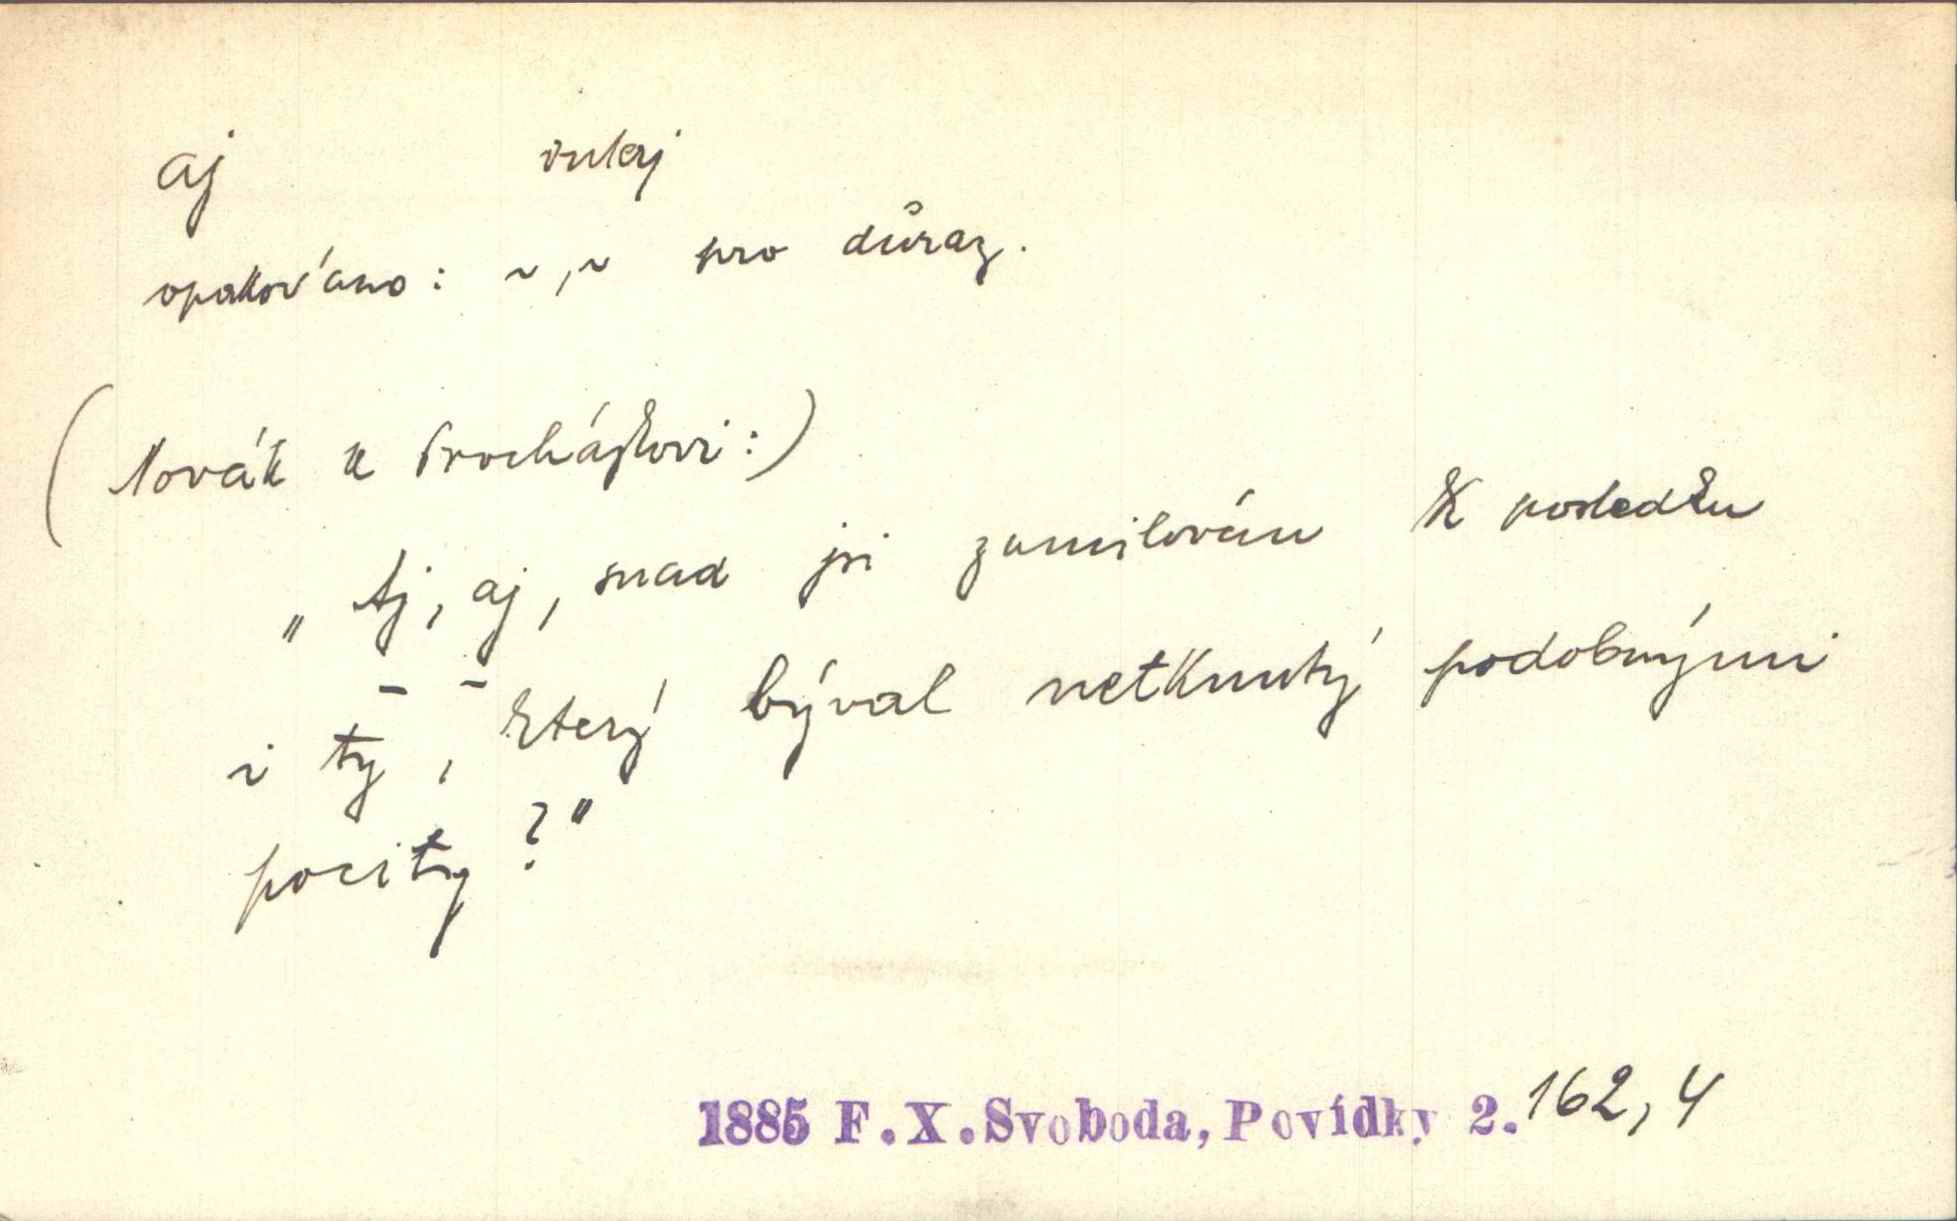 aj interj
opakováno: ~, ~ pro důraz.
(Novák k Procházkovi:)
„Aj, aj, snad jsi zamilován k posledku
i ty, který býval netknutý podobnými
pocity?"
1885 F. X. Svoboda, Povídky 2. 162, 4